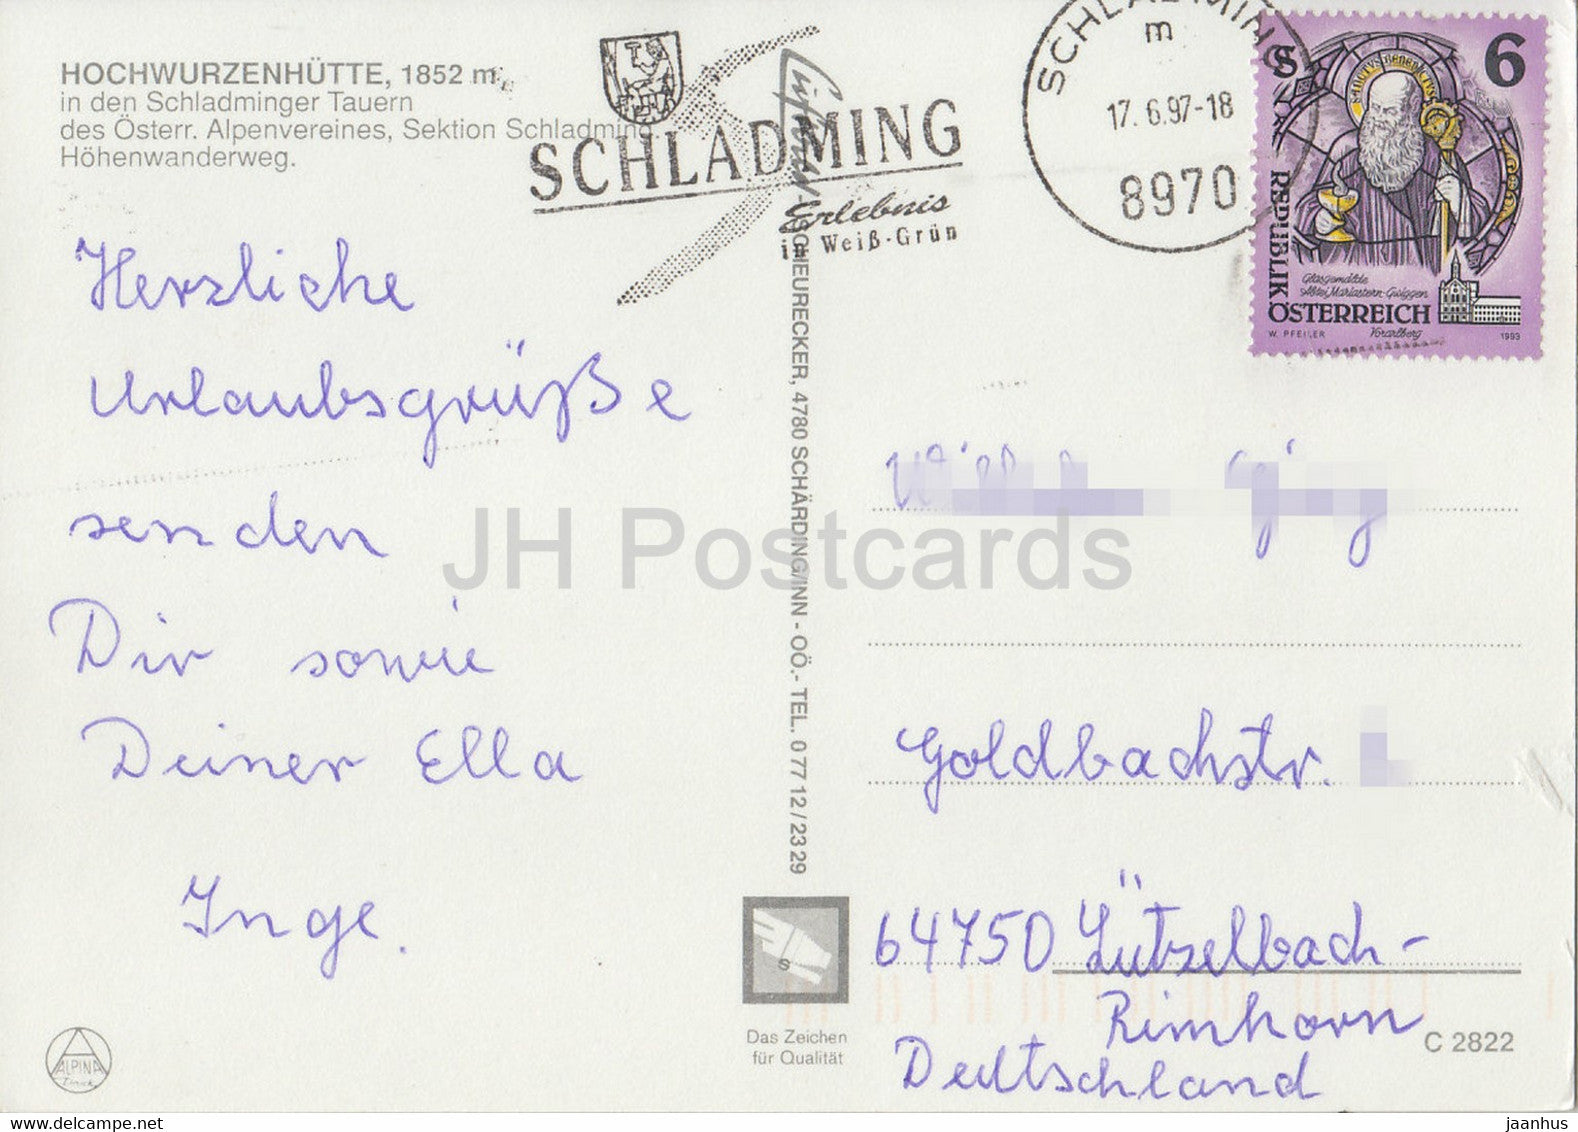 HOCHWURZENHÜTTE, 1852 m,
in den Schladminger Tauern
des Österr. Alpenvereines, Sektion Schladming.
Höhenwanderweg.
SCHLADMING
Erlebnis
in Weiß-Grün
SCHLADMING
m
17. 6.97-18
8970
6
S
SANCTVS BENEDICTVS
REPUBLIK
ÖSTERREICH
Glasgemälde
Abtei Mariastern-Gwiggen
Vorarlberg
W. PFEILER
1993
Herzliche
Urlaubsgrüße
senden
Dir sowie
Deiner Ella
Inge.
SCHEURECKER, 4780 SCHÄRDING/INN - OÖ.- TEL. 0 77 12 / 23 29
JH Postcards
Goldbachstr.
64750 Lützelbach-
Rimhorn
Deutschland
S
Das Zeichen
für Qualität
C 2822
ALPINA
jaanhus